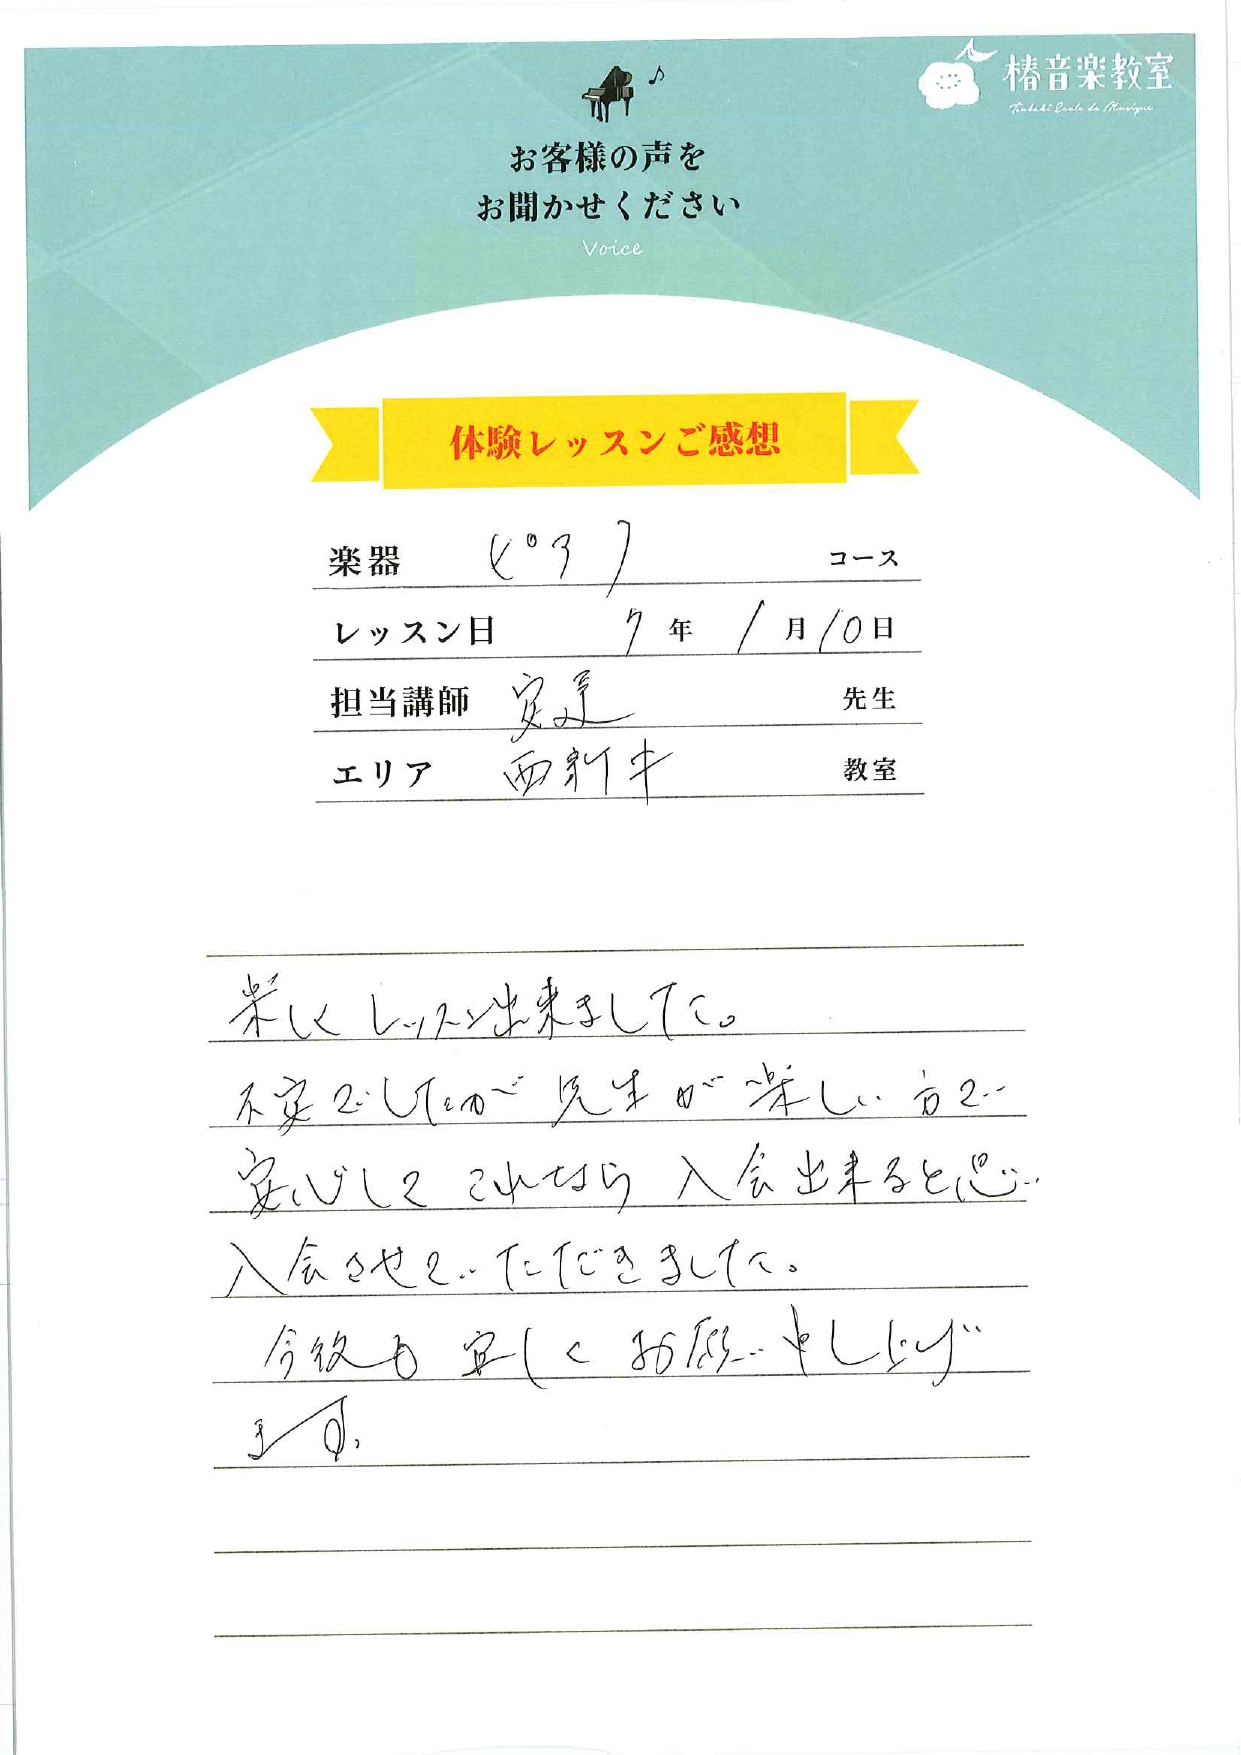 椿音楽教室
Tsubaki Ecole de Musique
お客様の声を
お聞かせください
Voice
体験レッスンご感想
楽器 ピアノ コース
レッスン日 7年 1月10日
担当講師 安達 先生
エリア 西新井 教室
楽しくレッスン出来ました。
不安でしたが先生が楽しい方で
安心してこれなら入会出来ると思い
入会させていただきました。
今後も宜しくお願い申し上げ
ます。